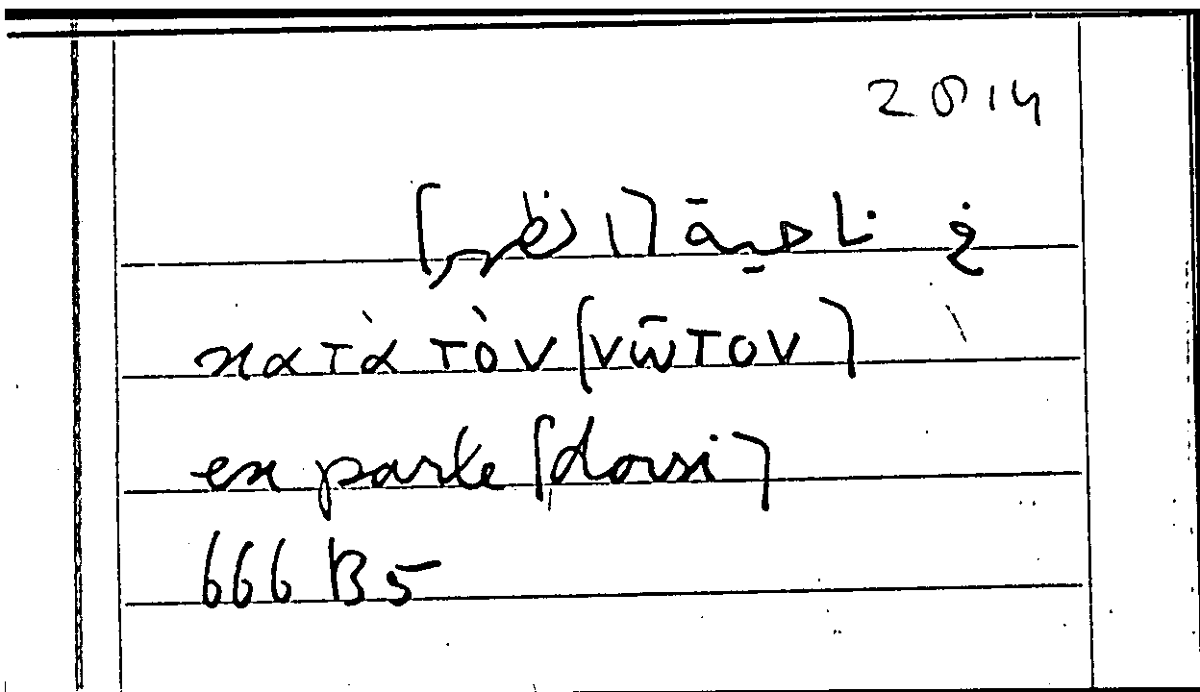 في ناحية [الظهر]
κατὰ τὸν [νῶτον]
ex parte [dorsi]
666 B5